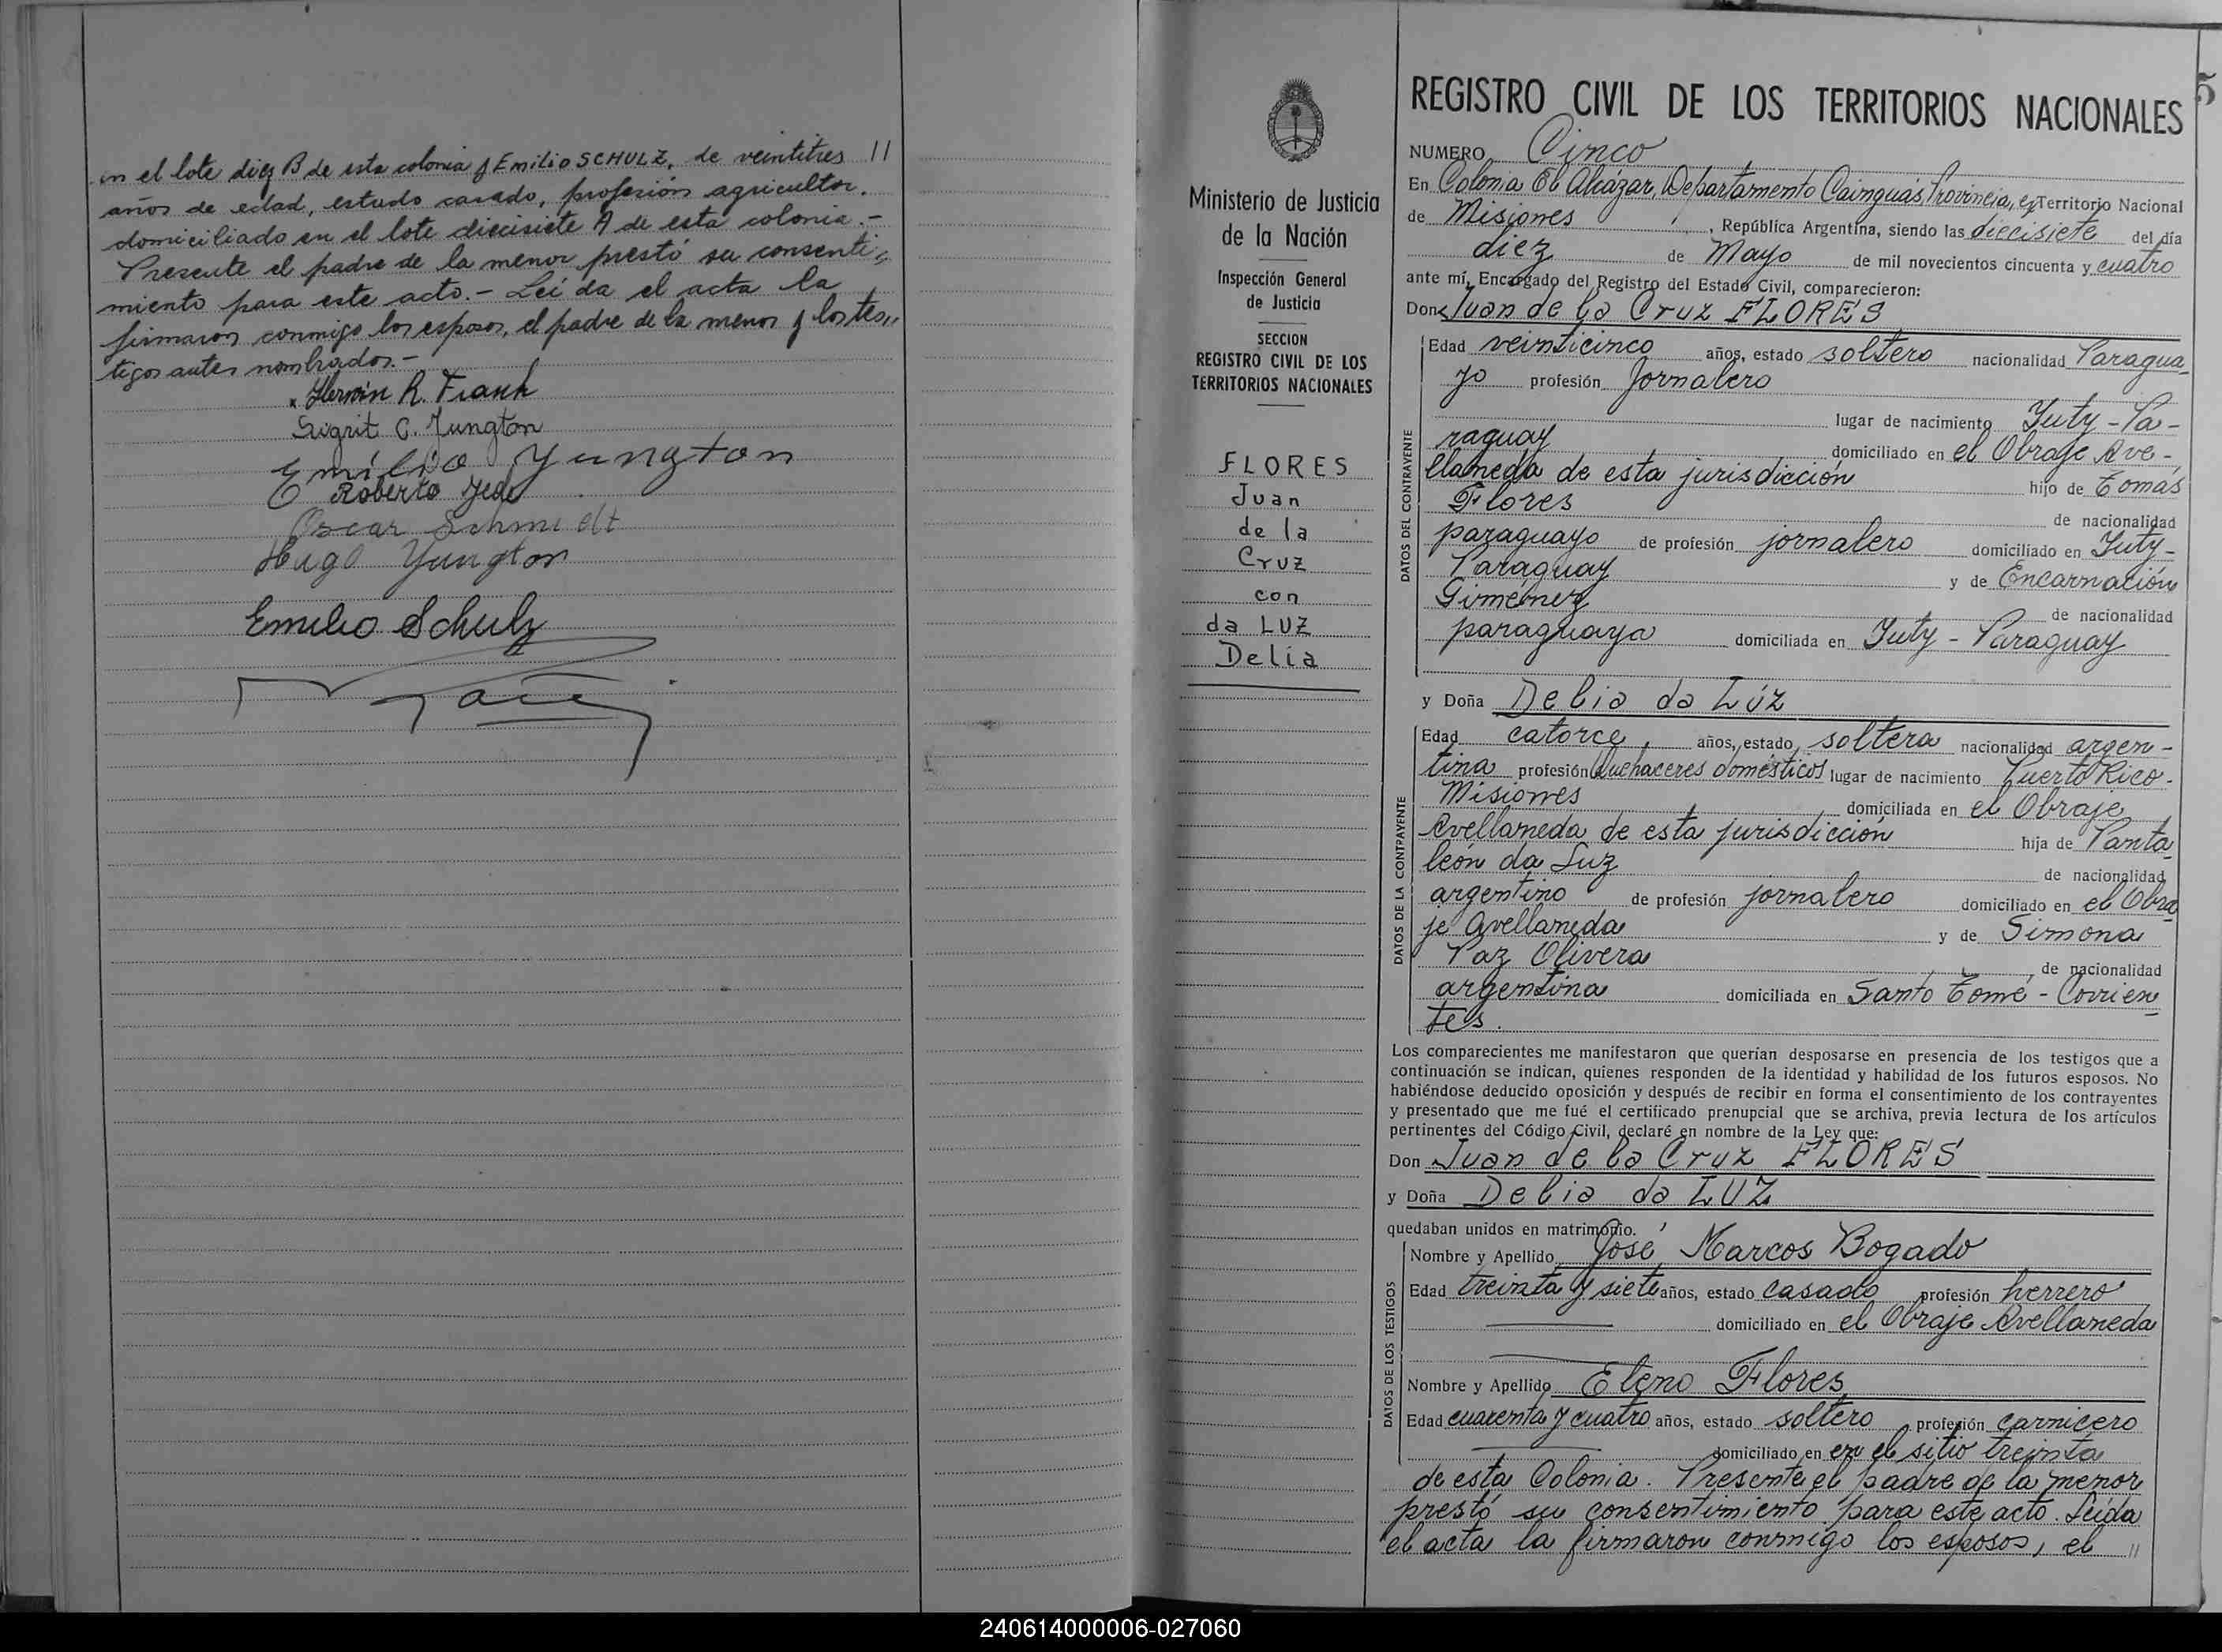 en el lote diez B de esta colonia y Emilio SCHULZ, de veintitres //
años de edad, estado casado, profesión agricultor.
domiciliado en el lote diecisiete A de esta colonia.-
Presente el padre de la menor prestó su consenti-
miento para este acto.- Leída el acta la
firmaron conmigo los esposos, el padre de la menor y los tes,,
tigos antes nombrados.-
R. Frank
Sigrit C. Jungton
Emilio Yungton
Roberto
Oscar Schmidt
Hugo Yungton
Emilio Schulz
Ministerio de Justicia
de la Nación
Inspección General
de Justicia
SECCION
REGISTRO CIVIL DE LOS
TERRITORIOS NACIONALES
FLORES
Juan
de la
Cruz
con
da LUZ
Delia
5
REGISTRO CIVIL DE LOS TERRITORIOS NACIONALES
NUMERO Cinco
En Colonia El Alcázar, Departamento Cainguás, Provincia, ex Territorio Nacional
de Misiones, República Argentina, siendo las diecisiete del día
diez de Mayo de mil novecientos cincuenta y cuatro
ante mí, Encargado del Registro del Estado Civil, comparecieron:
Don Juan de la Cruz FLORES
DATOS DEL CONTRAYENTE
Edad veinticinco años, estado soltero nacionalidad Paragua_
yo profesión Jornalero
lugar de nacimiento Yuty-Pa-
raguay domiciliado en el Obraje Ave-
llaneda de esta jurisdicción hijo de Tomás
Flores de nacionalidad
paraguayo de profesión jornalero domiciliado en Yuty-
Paraguay y de Encarnación
Gimenez de nacionalidad
paraguaya domiciliada en Yuty - Paraguay
y Doña Delia da Lúz
DATOS DE LA CONTRAYENTE
Edad catorce, años, estado soltera nacionalidad argen-
tina profesión Quehaceres domésticos lugar de nacimiento Puerto Rico-
Misiones domiciliada en el Obraje
Avellaneda de esta jurisdicción hija de Panta_
león da Luz de nacionalidad
argentino de profesión jornalero domiciliado en el Obra_
je Avellaneda y de Simona
Paz Olivera, de nacionalidad
argentina domiciliada en Santo Tomé - Corrien_
tes.
Los comparecientes me manifestaron que querían desposarse en presencia de los testigos que a
continuación se indican, quienes responden de la identidad y habilidad de los futuros esposos. No
habiéndose deducido oposición y después de recibir en forma el consentimiento de los contrayentes
y presentado que me fué el certificado prenupcial que se archiva, previa lectura de los artículos
pertinentes del Código Civil, declaré en nombre de la Ley que:
Don Juan de la Cruz FLORES
y Doña Delia da LUZ
quedaban unidos en matrimonio.
DATOS DE LOS TESTIGOS
Nombre y Apellido José Marcos Bogado
Edad treinta y siete años, estado casado profesión herrero
domiciliado en el Obraje Avellaneda
Nombre y Apellido Eleno Flores
Edad cuarenta y cuatro años, estado soltero profesión carnicero
domiciliado en en el sitio treinta
de esta Colonia. Presente el padre de la menor
prestó su consentimiento para este acto. Leída
el acta la firmaron conmigo los esposos, el //
240614000006-027060